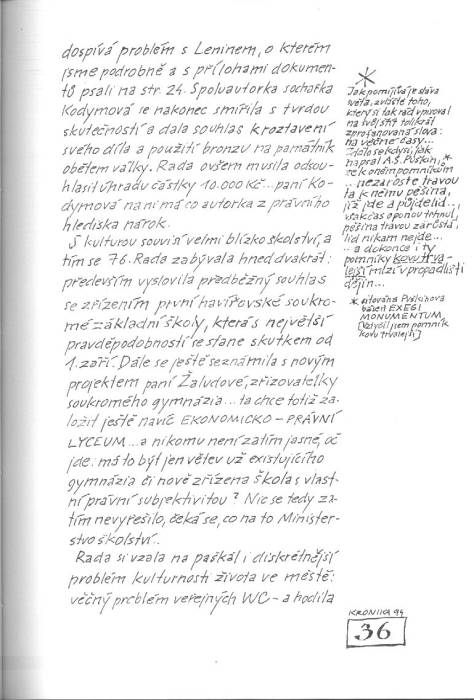 dospívá problém s Leninem, o kterém
jsme podrobně a s přílohami dokumen-
tů psali na str. 24. Spoluautorka sochařka
Kodymová se nakonec smířila s tvrdou
skutečností a dala souhlas k roztavení
svého díla a použití bronzu na památník
obětem války. Rada ovšem musila odsou-
hlasit úhradu částky 10.000 Kč... paní Ko-
dymová na ni má co autorka z právního
hlediska nárok.
S kulturou souvisí velmi blízko školství, a
tím se 76. Rada zabývala hned dvakrát:
především vyslovila předběžný souhlas
se zřízením první havířovské soukro-
mé základní školy, která s největší
pravděpodobností se stane skutkem od
1. září. Dále se ještě seznámila s novým
projektem paní Žaludové, zřizovatelky
soukromého gymnázia... ta chce totiž za-
ložit ještě navíc EKONOMICKO-PRÁVNÍ
LYCEUM... a nikomu není zatím jasné, oč
jde: má to být jen větev už existujícího
gymnázia či nově zřízena škola s vlast-
ní právní subjektivitou? Nic se tedy za-
tím nevyřešilo, čeká se, co na to Minister-
stvo školství.
Rada si vzala na paškál i diskrétnější
problém kulturnosti života ve městě:
věčný problém veřejných WC - a hodila
*
Jak pomíjivá je sláva
světa, zvláště toho,
který si tak rád vpisoval
na svůj štít tolikrát
zprofanovaná slova:
na věčné časy...
Zdálo se kdysi, jak
napsal A.S. Puškin,*
že k oněm pomníkům
... nezaroste travou
ta k němu pěšina,
již jde a půjde lid...
však čas oponou trhnul,
pěšina travou zarostá,
lid nikam nejde...
... a dokonce i ty
pomníky kovu trva-
lejší mizí v propadlišti
dějin...
* citována Puškinova
báseň EXEGI
MONUMENTUM,
[Vztyčil jsem pomník
kovu trvalejší]
KRONIKA 94
36